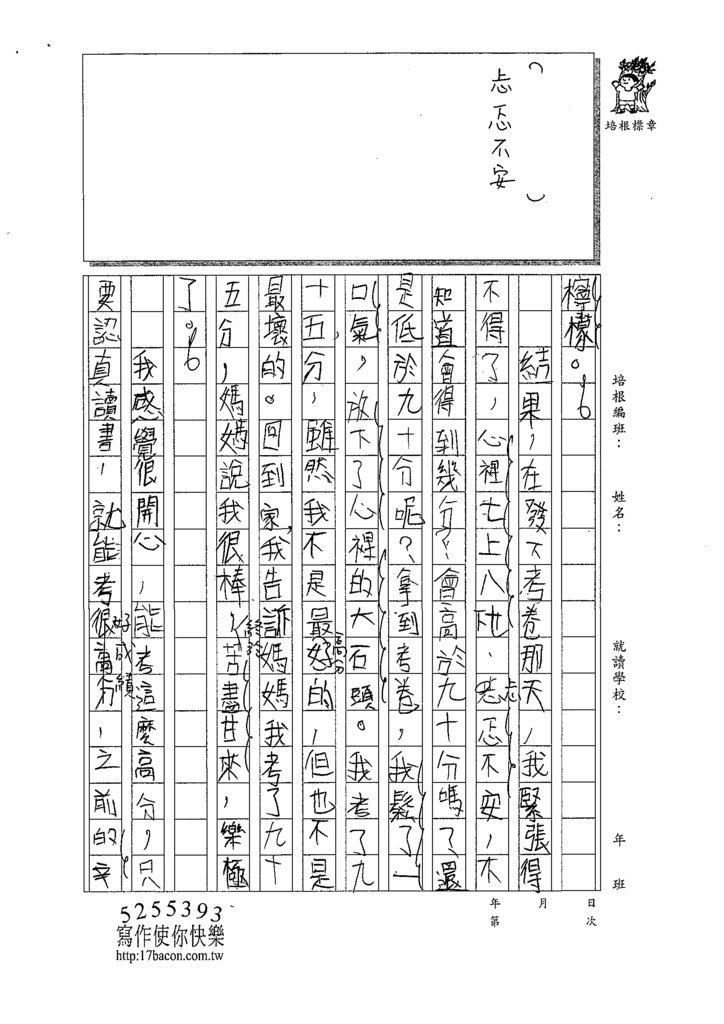 忐忑不安
培根標章
檸檬。
結果，在發下考卷那天，我緊張得
不得了，心裡七上八下、忐忑不安，不
知道會得到幾分？會高於九十分嗎？還
是低於九十分呢？拿到考卷，我鬆了一
口氣，放下了心裡的大石頭。我考了九
十五分，雖然我不是最好的，但也不是
高分
最壞的。回到家，我告訴媽媽我考了九十
五分，媽媽說我很棒，苦盡甘來，樂極
終於
了。
我感覺很開心，能考這麼高分，只
要認真讀書，就能考很高分，之前的辛
好成績
培根編班：
姓名：
就讀學校：
年 班
年 月 日
第 次
5255393
寫作使你快樂
http:17bacon.com.tw